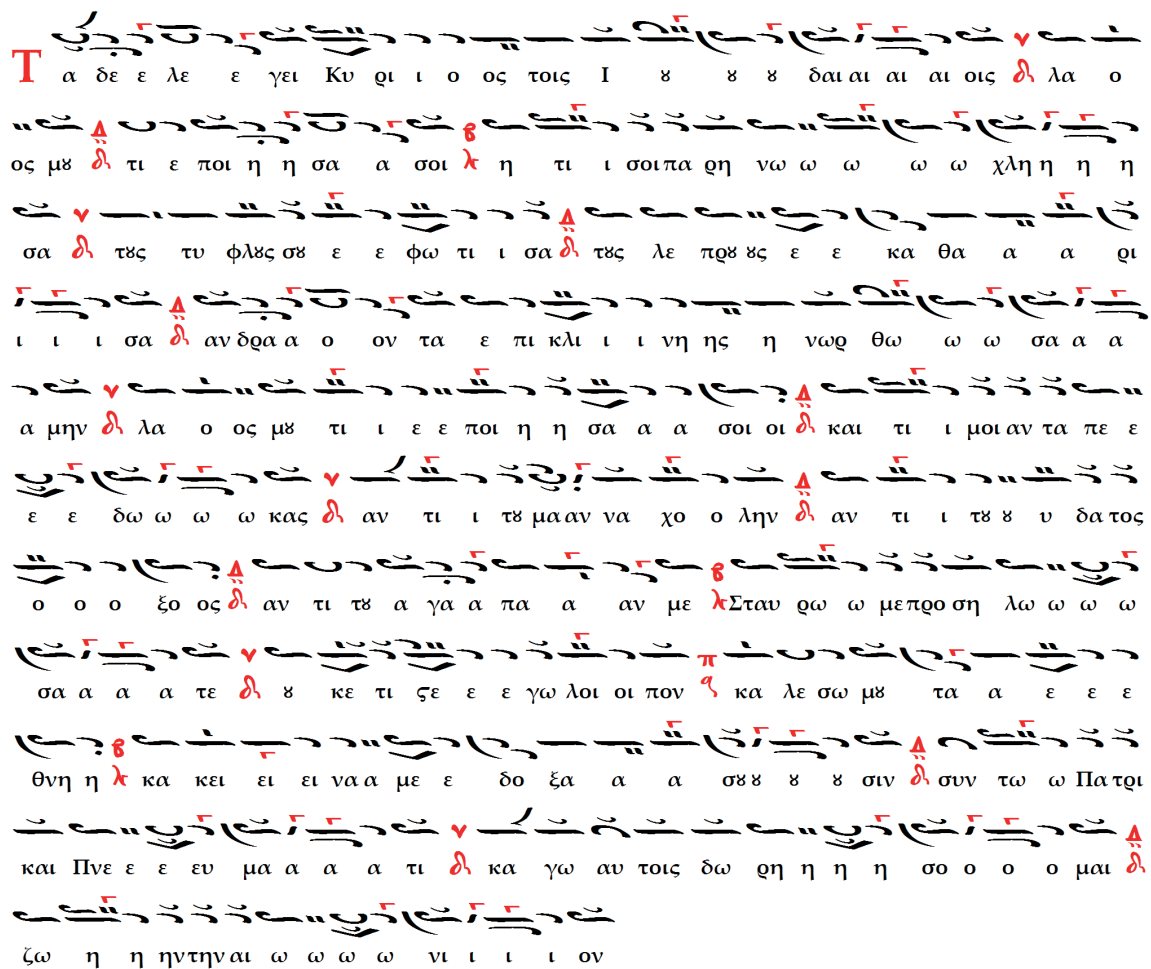 Τ α δε ε λε ε γει Κυ ρι ι ο ος τοις Ι ȣ ȣ ȣ δαι αι αι αι οις λα ο
ος μȣ τι ε ποι η η σα α σοι η τι ι σοι πα ρη νω ω ω ω ω χλη η η η
σα τȣς τυ φλȣς σȣ ε ε φω τι ι σα τȣς λε πρȣ ȣς ε ε κα θα α α ρι
ι ι ι σα αν δρα α ο ον τα ε πι κλι ι ι νη ης η νωρ θω ω ω σα α α
α μην λα ο ος μȣ τι ι ε ε ποι η η σα α α σοι οι και τι ι μοι αν τα πε ε
ε ε δω ω ω ω κας αν τι ι τȣ μα αν να χο ο λην αν τι ι τȣ ȣ υ δα τος
ο ο ο ξο ος αν τι τȣ α γα α πα α αν με Σταυ ρω ω με προ ση λω ω ω ω
σα α α α τε ȣ κε τι ϛε ε ε γω λοι οι πον κα λε σω μȣ τα α ε ε ε
θνη η κα κει ει ει να α με ε δο ξα α α σȣ ȣ ȣ ȣ σιν συν τω ω Πα τρι
και Πνε ε ε ευ μα α α α τι κα γω αυ τοις δω ρη η η η σο ο ο ο μαι
ζω η η ην την αι ω ω ω ω νι ι ι ι ον